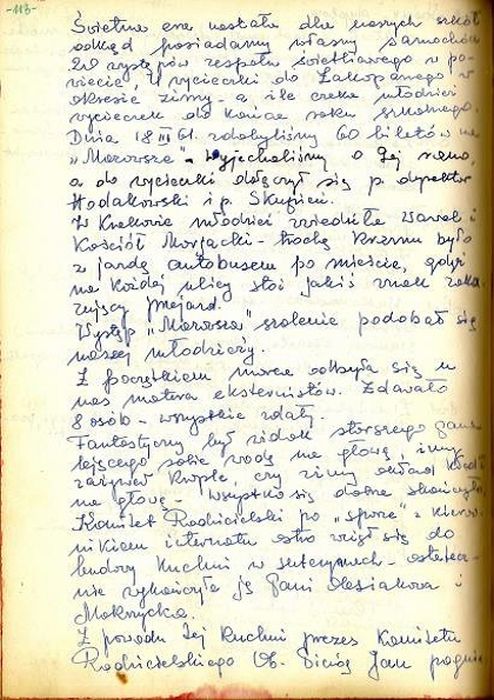 -113-
Świetna era nastała dla naszych szkół
odkąd posiadamy własny samochód
20 występów zespołu świetlicowego w po-
wiecie, 4 wycieczki do Zakopanego w
okresie zimy - a ile czeka młodzież
wycieczek do końca roku szkolnego.
Dnia 18 III 61. zdobyliśmy 60 biletów na
"Mazowsze" - Wyjechaliśmy o 9ej rano,
a do wycieczki dołączył się p. dyrektor
Hodakowski i p. Skupień.
W Krakowie młodzież zwiedziła Wawel i
Kościół Marjacki - trochę krzemu było
z jazdą autobusem po mieście, gdyż
na każdej ulicy stoi jakiś znak zaka-
zujący wjazd.
Występ "Mazowsza" szalenie podobał się
naszej młodzieży.
Z początkiem marca odbyła się u
nas matura eksternistów. Zdawało
8 osób - wszystkie zdały.
Fantastyczny był widok starszego pana
lejącego sobie wodę na głowę, inny
zażywał krople, czy zimny okład kładł
na głowę - wszystko się dobrze skończyło.
Komitet Rodzicielski po "sporze" z kierow-
nikiem internatu ostro wziął się do
budowy kuchni w suterynach - ostatecz-
nie wykończyła ją Pani Olesiakowa i
Mokrzycka.
Z powodu tej kuchni prezes Komitetu
Rodzicielskiego Ob. Jan